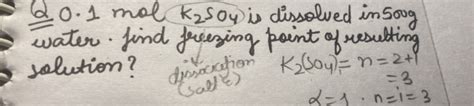 Q 0.1 mol K₂SO₄ is dissolved in 500g
water. find freezing point of resulting
solution?
dissociation
(salt)
K₂(SO₄) = n = 2+1
= 3
α = 1 . n = i = 3